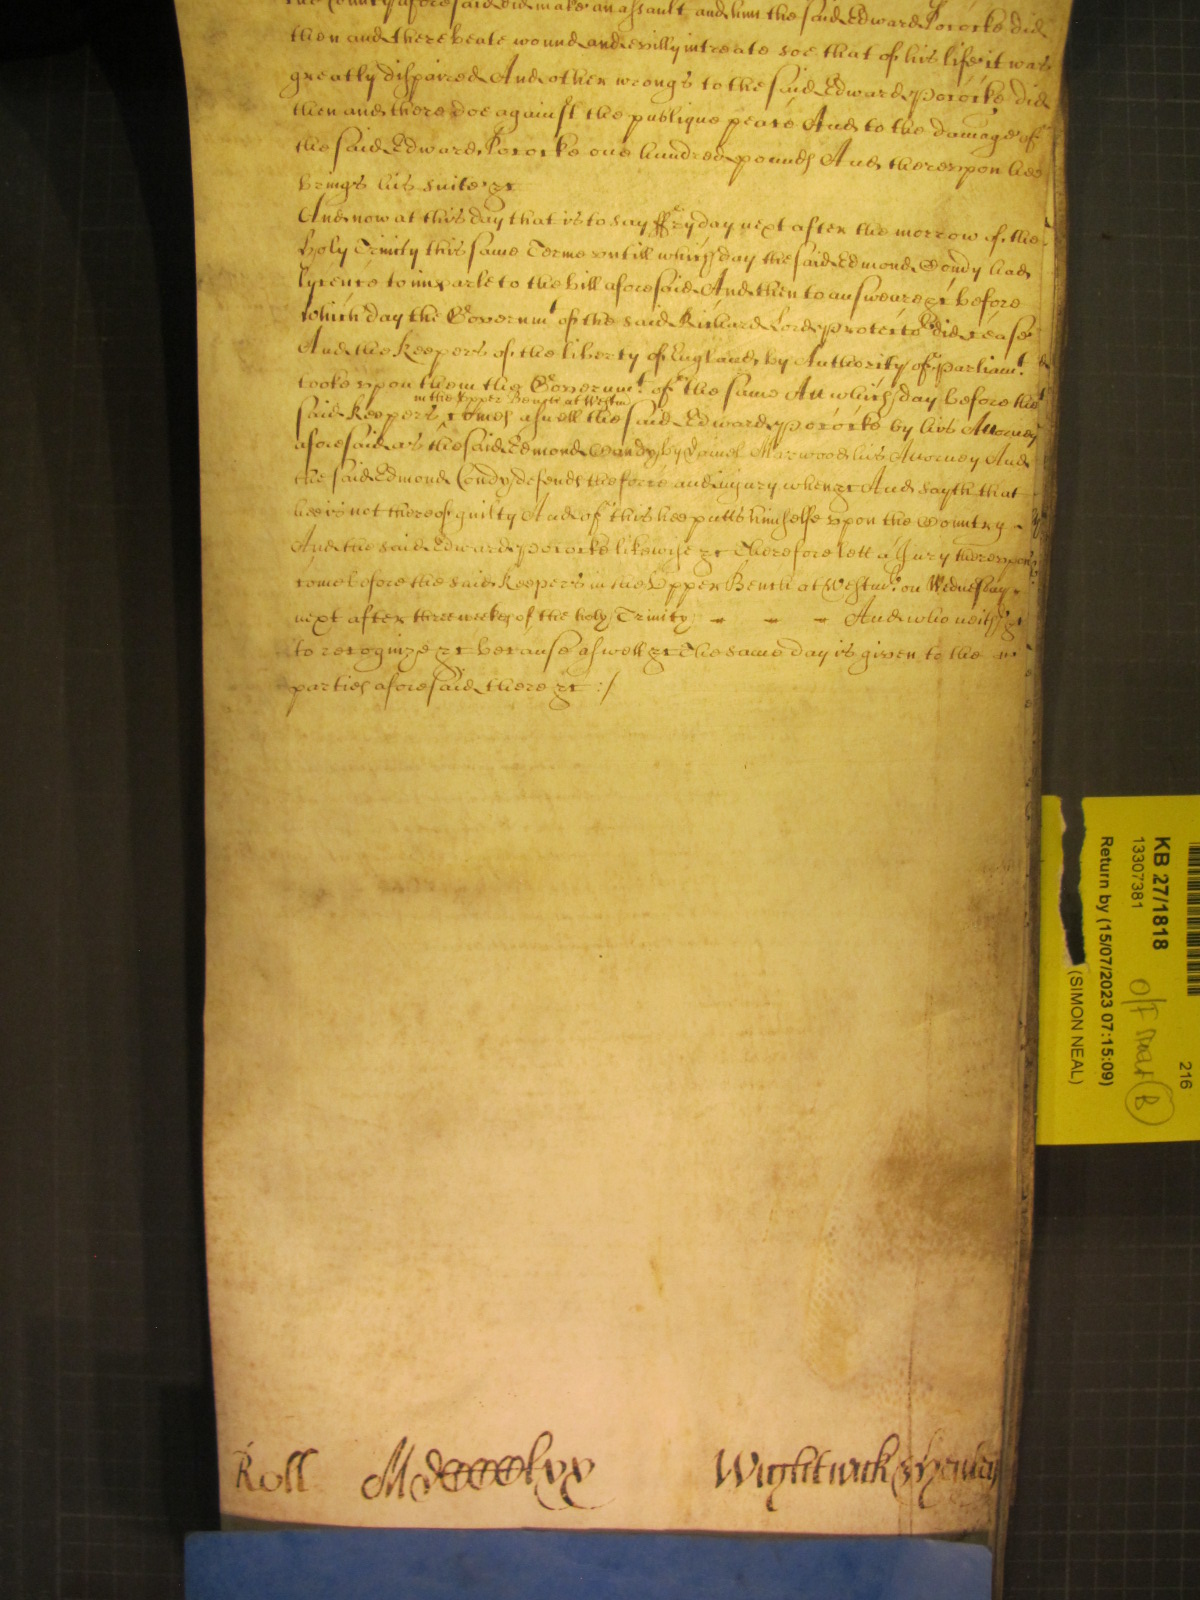 the County aforesaid did make an assault and him the said Edward Pocock did
then and there beate wound and evilly intreate soe that of his life it was
greatly dispaired And other wrongs to the said Edward Pococke did
then and there doe against the publique peace And to the damage of
the said Edward Pococke one hundred pounds And thereupon hee
brings his suite &c
And now at this day that is to say ffryday next after the morrow of the
holy Trinity this same Terme untill which day the said Edmond Condy had
lycence to imparle to the bill aforesaid And then to answeare &c before
which day the Governmt of the said Richard Lord Protector did cease
And the Keepers of the liberty of England by Authority of Parliamt
tooke upon them the Governmt of the same Att which day before the
in the Upper Bench at Westm
said Keepers comes aswell the said Edward Pococke by his Attorney
aforesaid as the said Edmond Condy by Marwood his Attorney And
the said Edmond Condy defends the force and injury when &c And sayth that
hee is not thereof guilty And of this hee putts himselfe upon the Country
And the said Edward Pococke likewise &c Therefore lett a Jury thereupon
come before the said Keepers in the Upper Bench at Westmr on Wednesday
next after three weekes of the holy Trinity And who neith &c
to recognize &c because aswell &c The same day is given to the
parties aforesaid there &c :/
Roll MdCCCClxx Wightwick & Henley
KB 27/1818
13307381
Return by (15/07/2023 07:15:09)
(SIMON NEAL)
216
B